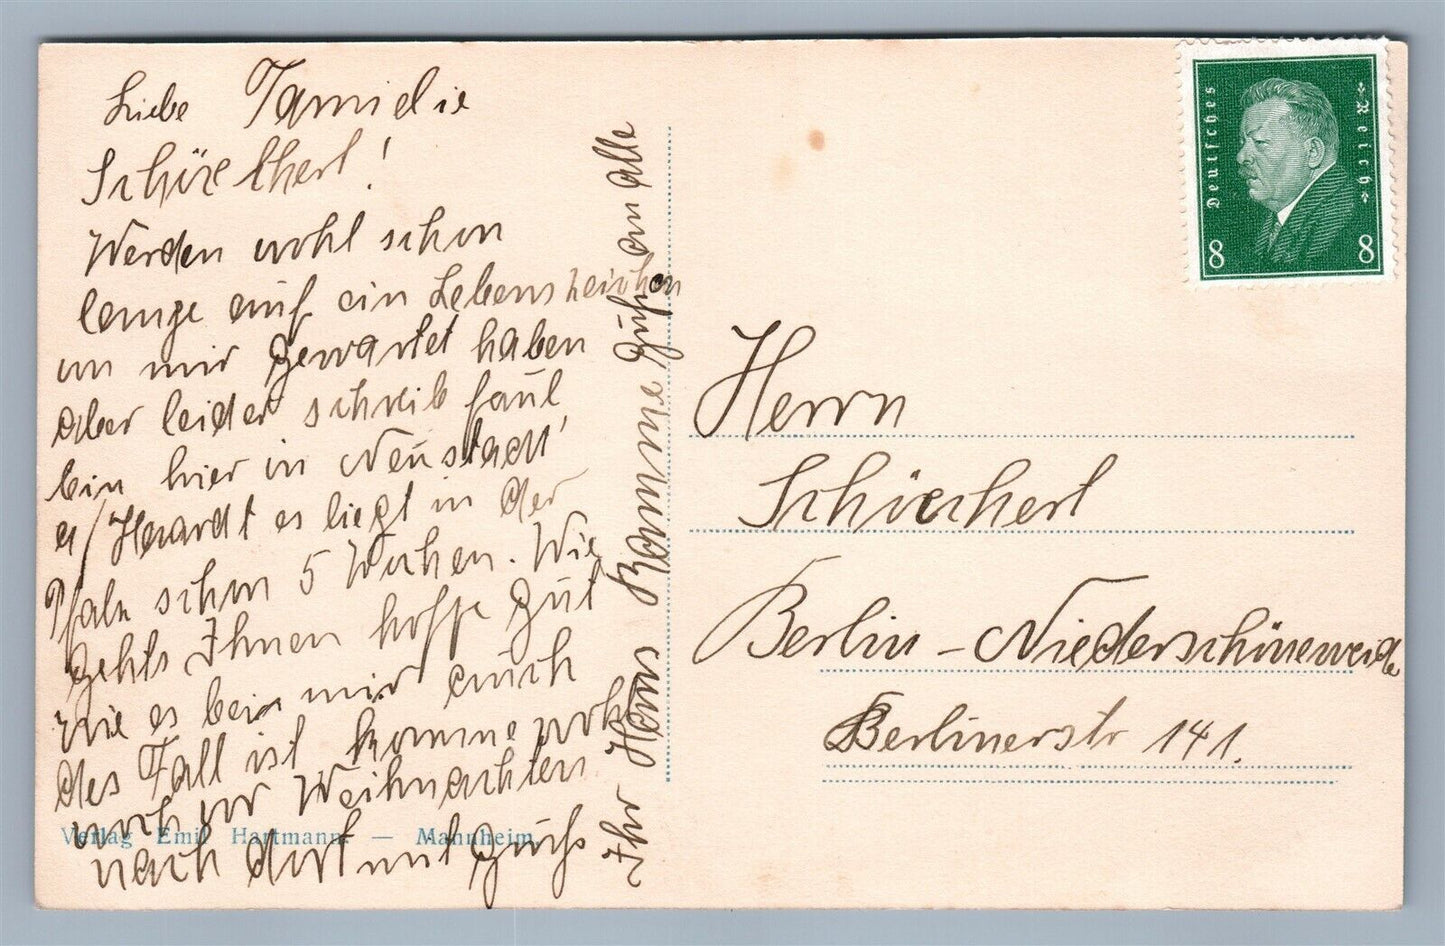 Liebe Familie
Schörchert!
Werden wohl schon
lange auf ein Lebenszeichen
von mir gewartet haben
aber leider schreib faul,
bin hier in Neustadt
a/Haardt es liegt in der
Pfalz schon 5 Wochen. Wie
gehts Ihnen hoffe gut
wie es bei mir auch
des Fall ist komme wohl
noch vor Weihnachten
nach dort mit Gruß
Ihr Hans Gruß an alle
Verlag Emil Hartmann — Mannheim.
Deutsches Reich
8 8
Herrn
Berlin - Niederschöneweide
Berlinerstr 141.